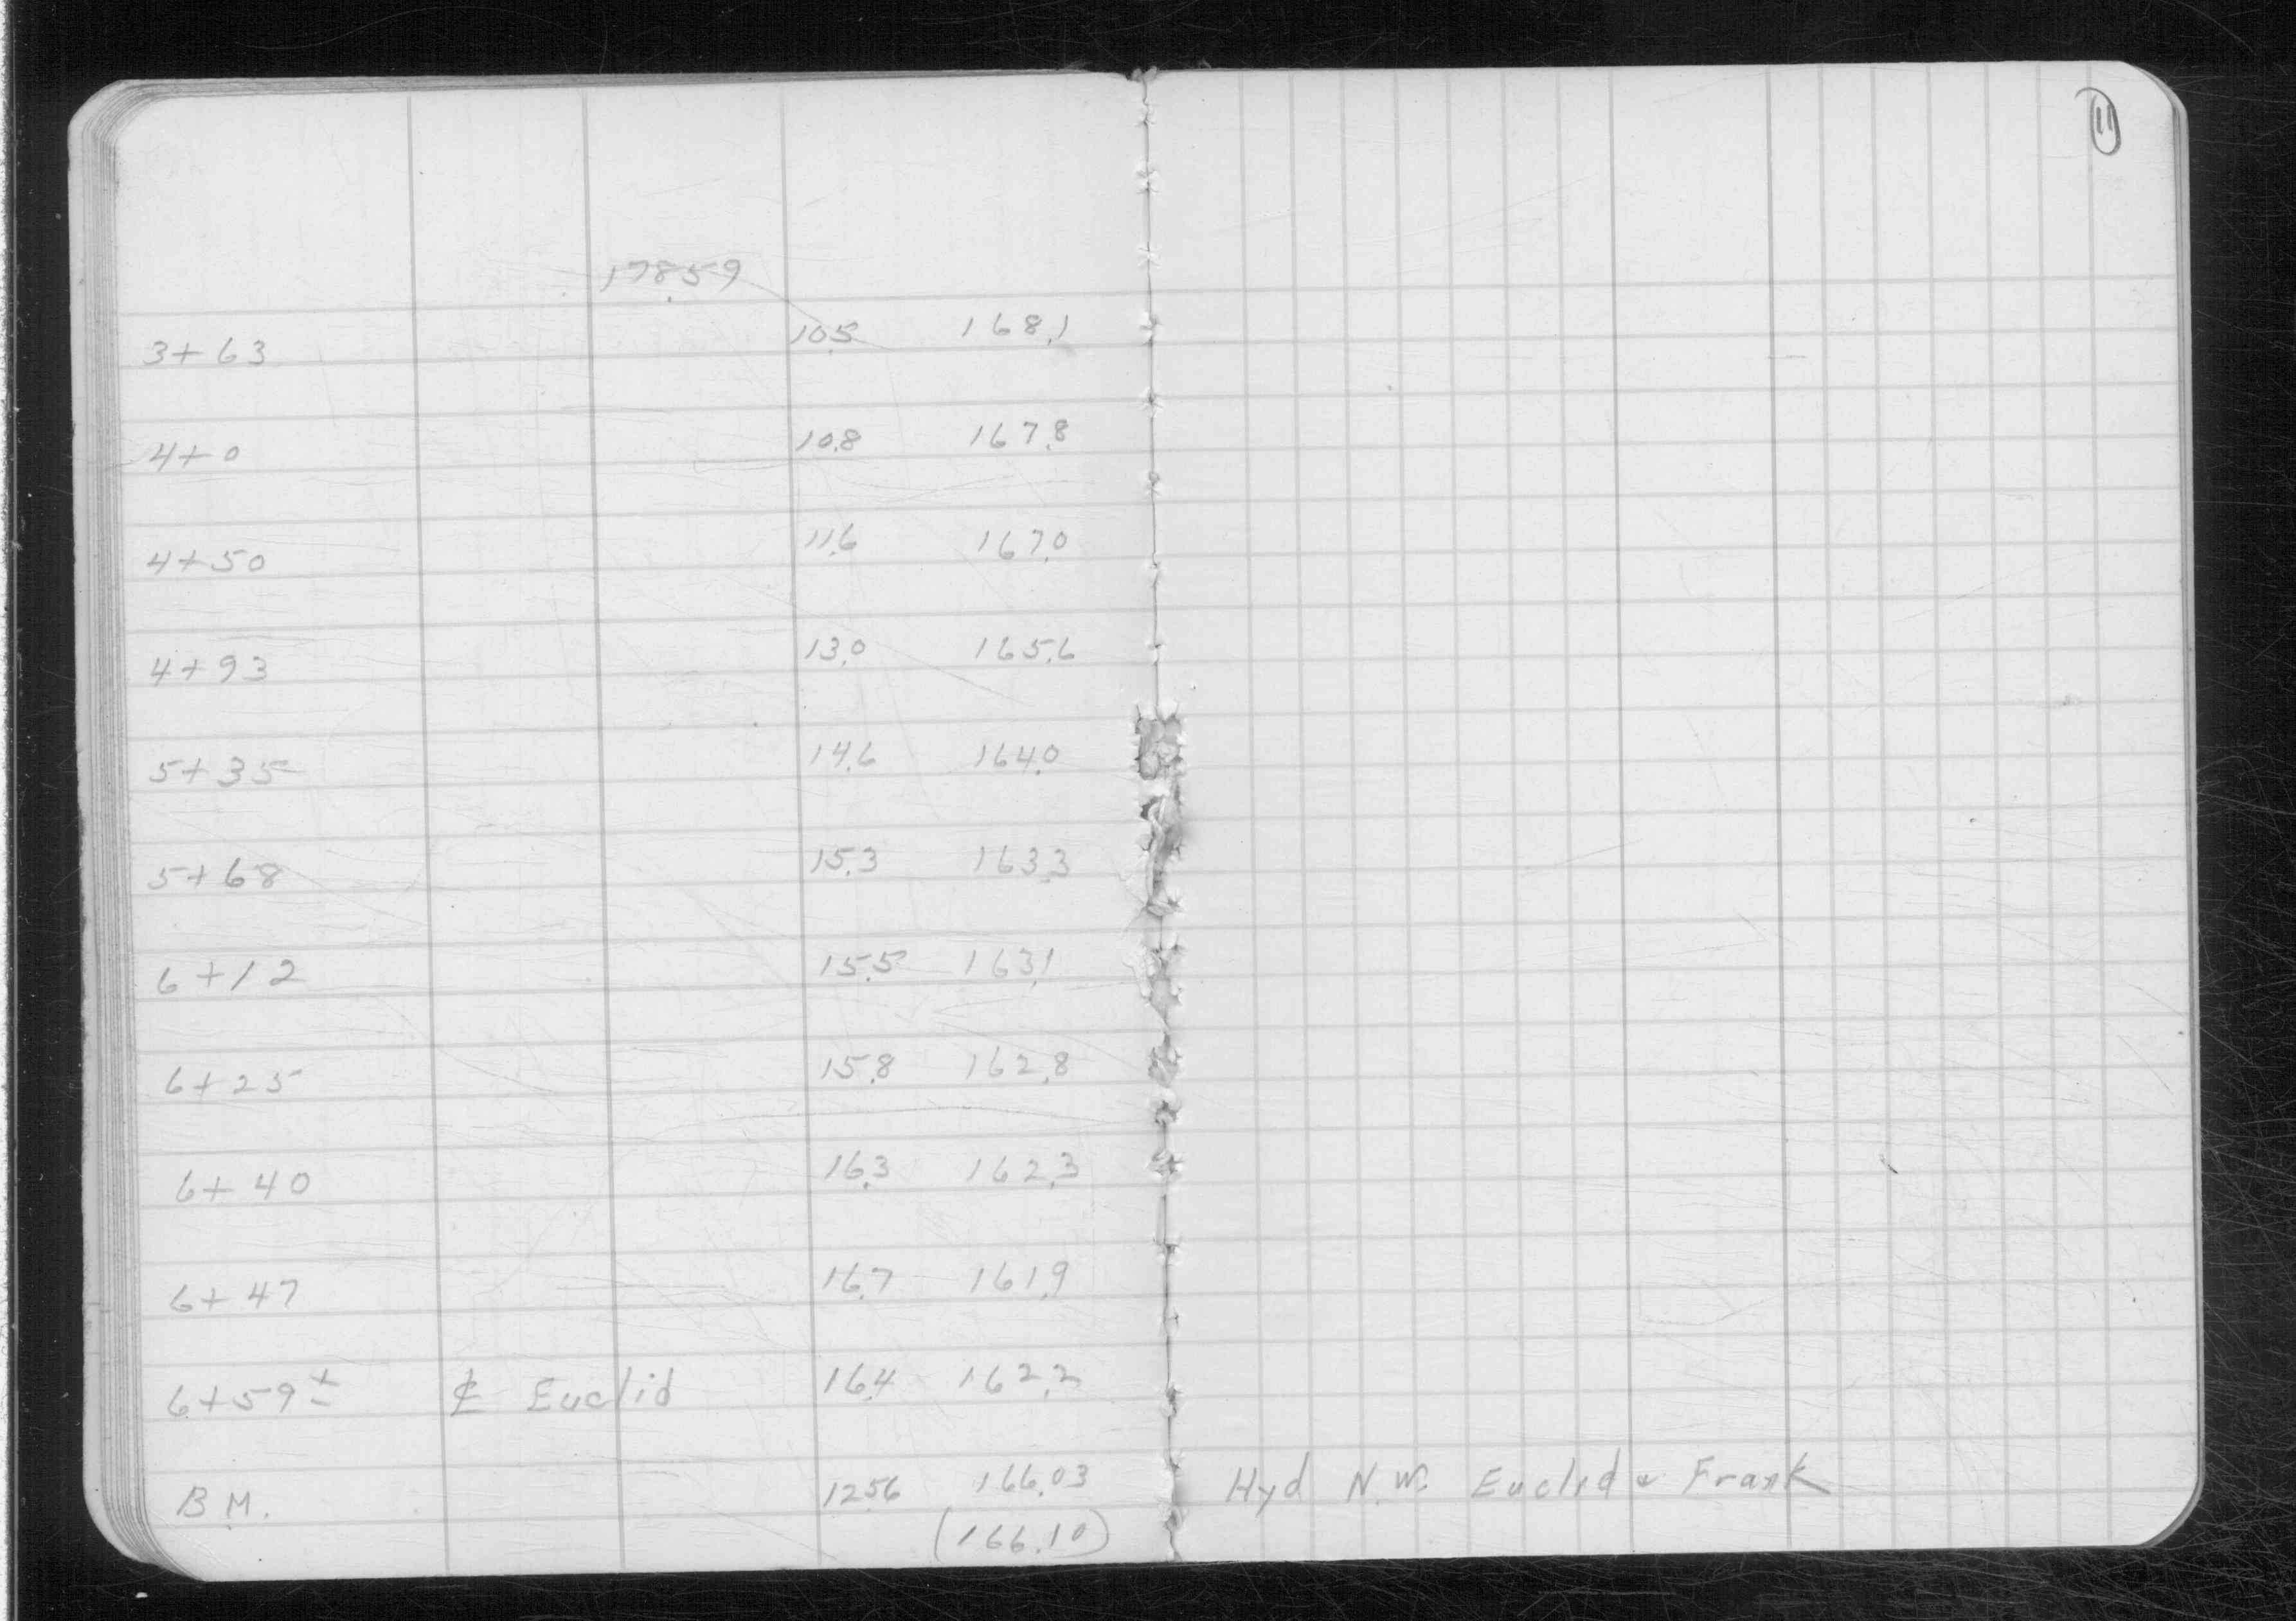 11
178.59
3+63 10.5 168.1
4+0 10.8 167.8
4+50 11.6 167.0
4+93 13.0 165.6
5+35 14.6 164.0
5+68 15.3 163.3
6+12 15.5 163.1
6+25 15.8 162.8
6+40 16.3 162.3
6+47 16.7 161.9
6+59± ℄ Euclid 16.4 162.2
B.M. 12.56 166.03 Hyd N.W. Euclid & Frank
(166.10)